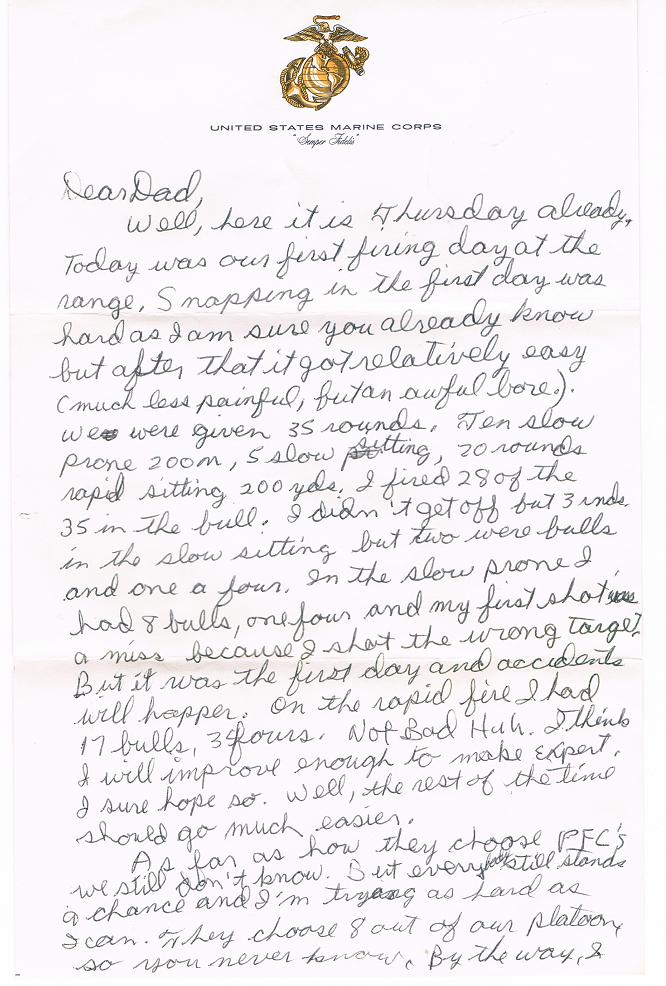 UNITED STATES MARINE CORPS
"Semper Fidelis"
Dear Dad,
Well, here it is Thursday already.
Today was our first firing day at the
range. Snapping in the first day was
hard as I am sure you already know
but after that it got relatively easy
(much less painful, but an awful bore.).
We were given 35 rounds. Ten slow
prone 200m, 5 slow sitting, 20 rounds
rapid sitting 200 yds. I fired 28 of the
35 in the bull. I didn't get off but 3 rnds.
in the slow sitting but two were bulls
and one a four. In the slow prone I
had 8 bulls, one four and my first shot was
a miss because I shot the wrong target.
But it was the first day and accidents
will happen. On the rapid fire I had
17 bulls, 3 fours. Not Bad Huh. I think
I will improve enough to make expert.
I sure hope so. Well, the rest of the time
should go much easier.
As far as how they choose PFC's
we still don't know. But everybody still stands
a chance and I'm trying as hard as
I can. They choose 8 out of our platoon,
so you never know. By the way, I